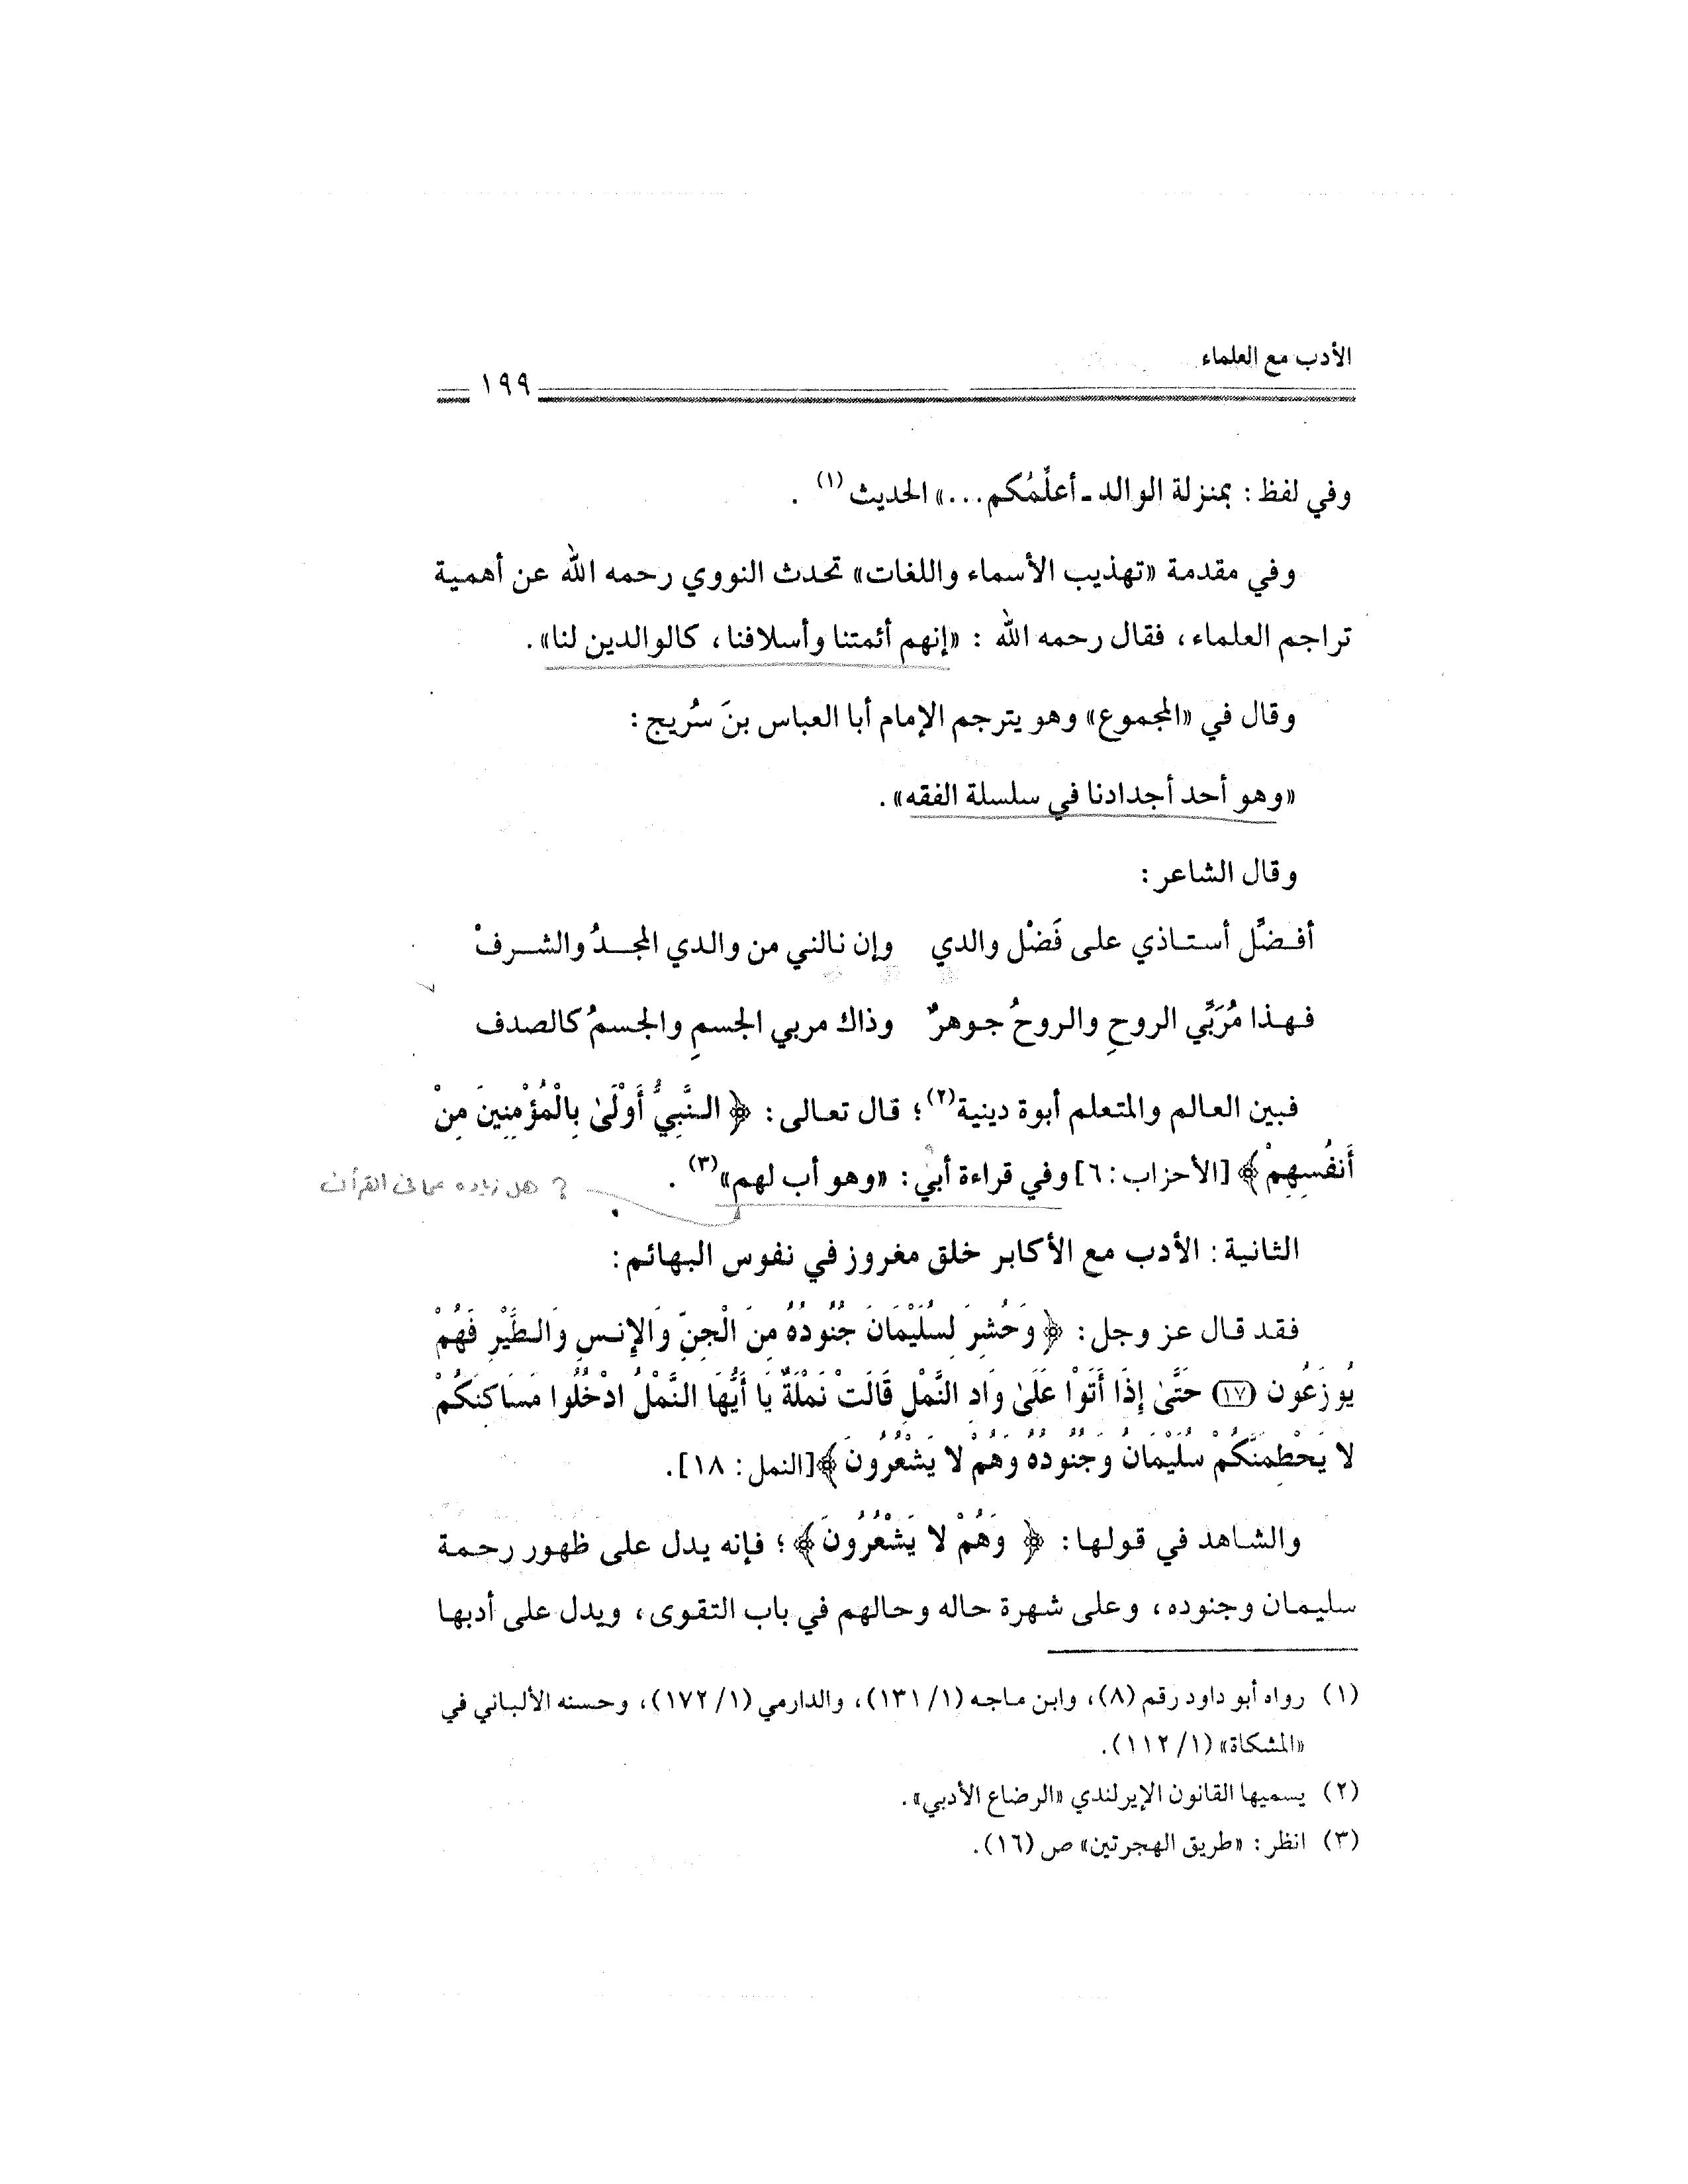 الأدب مع العلماء
١٩٩
وفي لفظ: بمنزلة الوالد ـ أعلِّمُكم...» الحديث (١) .
وفي مقدمة «تهذيب الأسماء واللغات» تحدث النووي رحمه الله عن أهمية
تراجم العلماء، فقال رحمه الله : «إنهم أئمتنا وأسلافنا، كالوالدين لنا».
وقال في «المجموع» وهو يترجم الإمام أبا العباس بنَ سُريج:
«وهو أحد أجدادنا في سلسلة الفقه».
وقال الشاعر:
أفـضِّل أسـتـاذي على فَضْل والدي وإن نـالني من والـدي المجـدُ والشـرفْ
فـهـذا مُرَبِّي الروحِ والروحُ جـوهرٌ وذاك مربي الجسمِ والجسمُ كالصدف
فبين العالم والمتعلم أبوة دينية(٢)؛ قال تعالى: ﴿ النَّبِيُّ أَوْلَىٰ بِالْمُؤْمِنِينَ مِنْ
أَنفُسِهِمْ ﴾ [الأحزاب: ٦] وفي قراءة أبي: «وهو أب لهم»(٣) .
؟ هل زياده عما فى القرآن
الثانية: الأدب مع الأكابر خلق مغروز في نفوس البهائم:
فقد قال عز وجل: ﴿ وَحُشِرَ لِسُلَيْمَانَ جُنُودُهُ مِنَ الْجِنِّ وَالإِنسِ وَالطَّيْرِ فَهُمْ
يُوزَعُون (١٧) حَتَّىٰ إِذَا أَتَوْا عَلَىٰ وَادِ النَّمْلِ قَالَتْ نَمْلَةٌ يَا أَيُّهَا النَّمْلُ ادْخُلُوا مَسَاكِنَكُمْ
لا يَحْطِمَنَّكُمْ سُلَيْمَانُ وَجُنُودُهُ وَهُمْ لا يَشْعُرُونَ ﴾[النمل: ١٨].
والشاهد في قولها: ﴿ وَهُمْ لا يَشْعُرُونَ ﴾؛ فإنه يدل على ظهور رحمة
سليمان وجنوده، وعلى شهرة حاله وحالهم في باب التقوى، ويدل على أدبها
(١) رواه أبو داود رقم (٨)، وابن ماجه (١/ ١٣١)، والدارمي (١/ ١٧٢)، وحسنه الألباني في
«المشكاة» (١/ ١١٢).
(٢) يسميها القانون الإيرلندي «الرضاع الأدبي».
(٣) انظر: «طريق الهجرتين» ص (١٦).